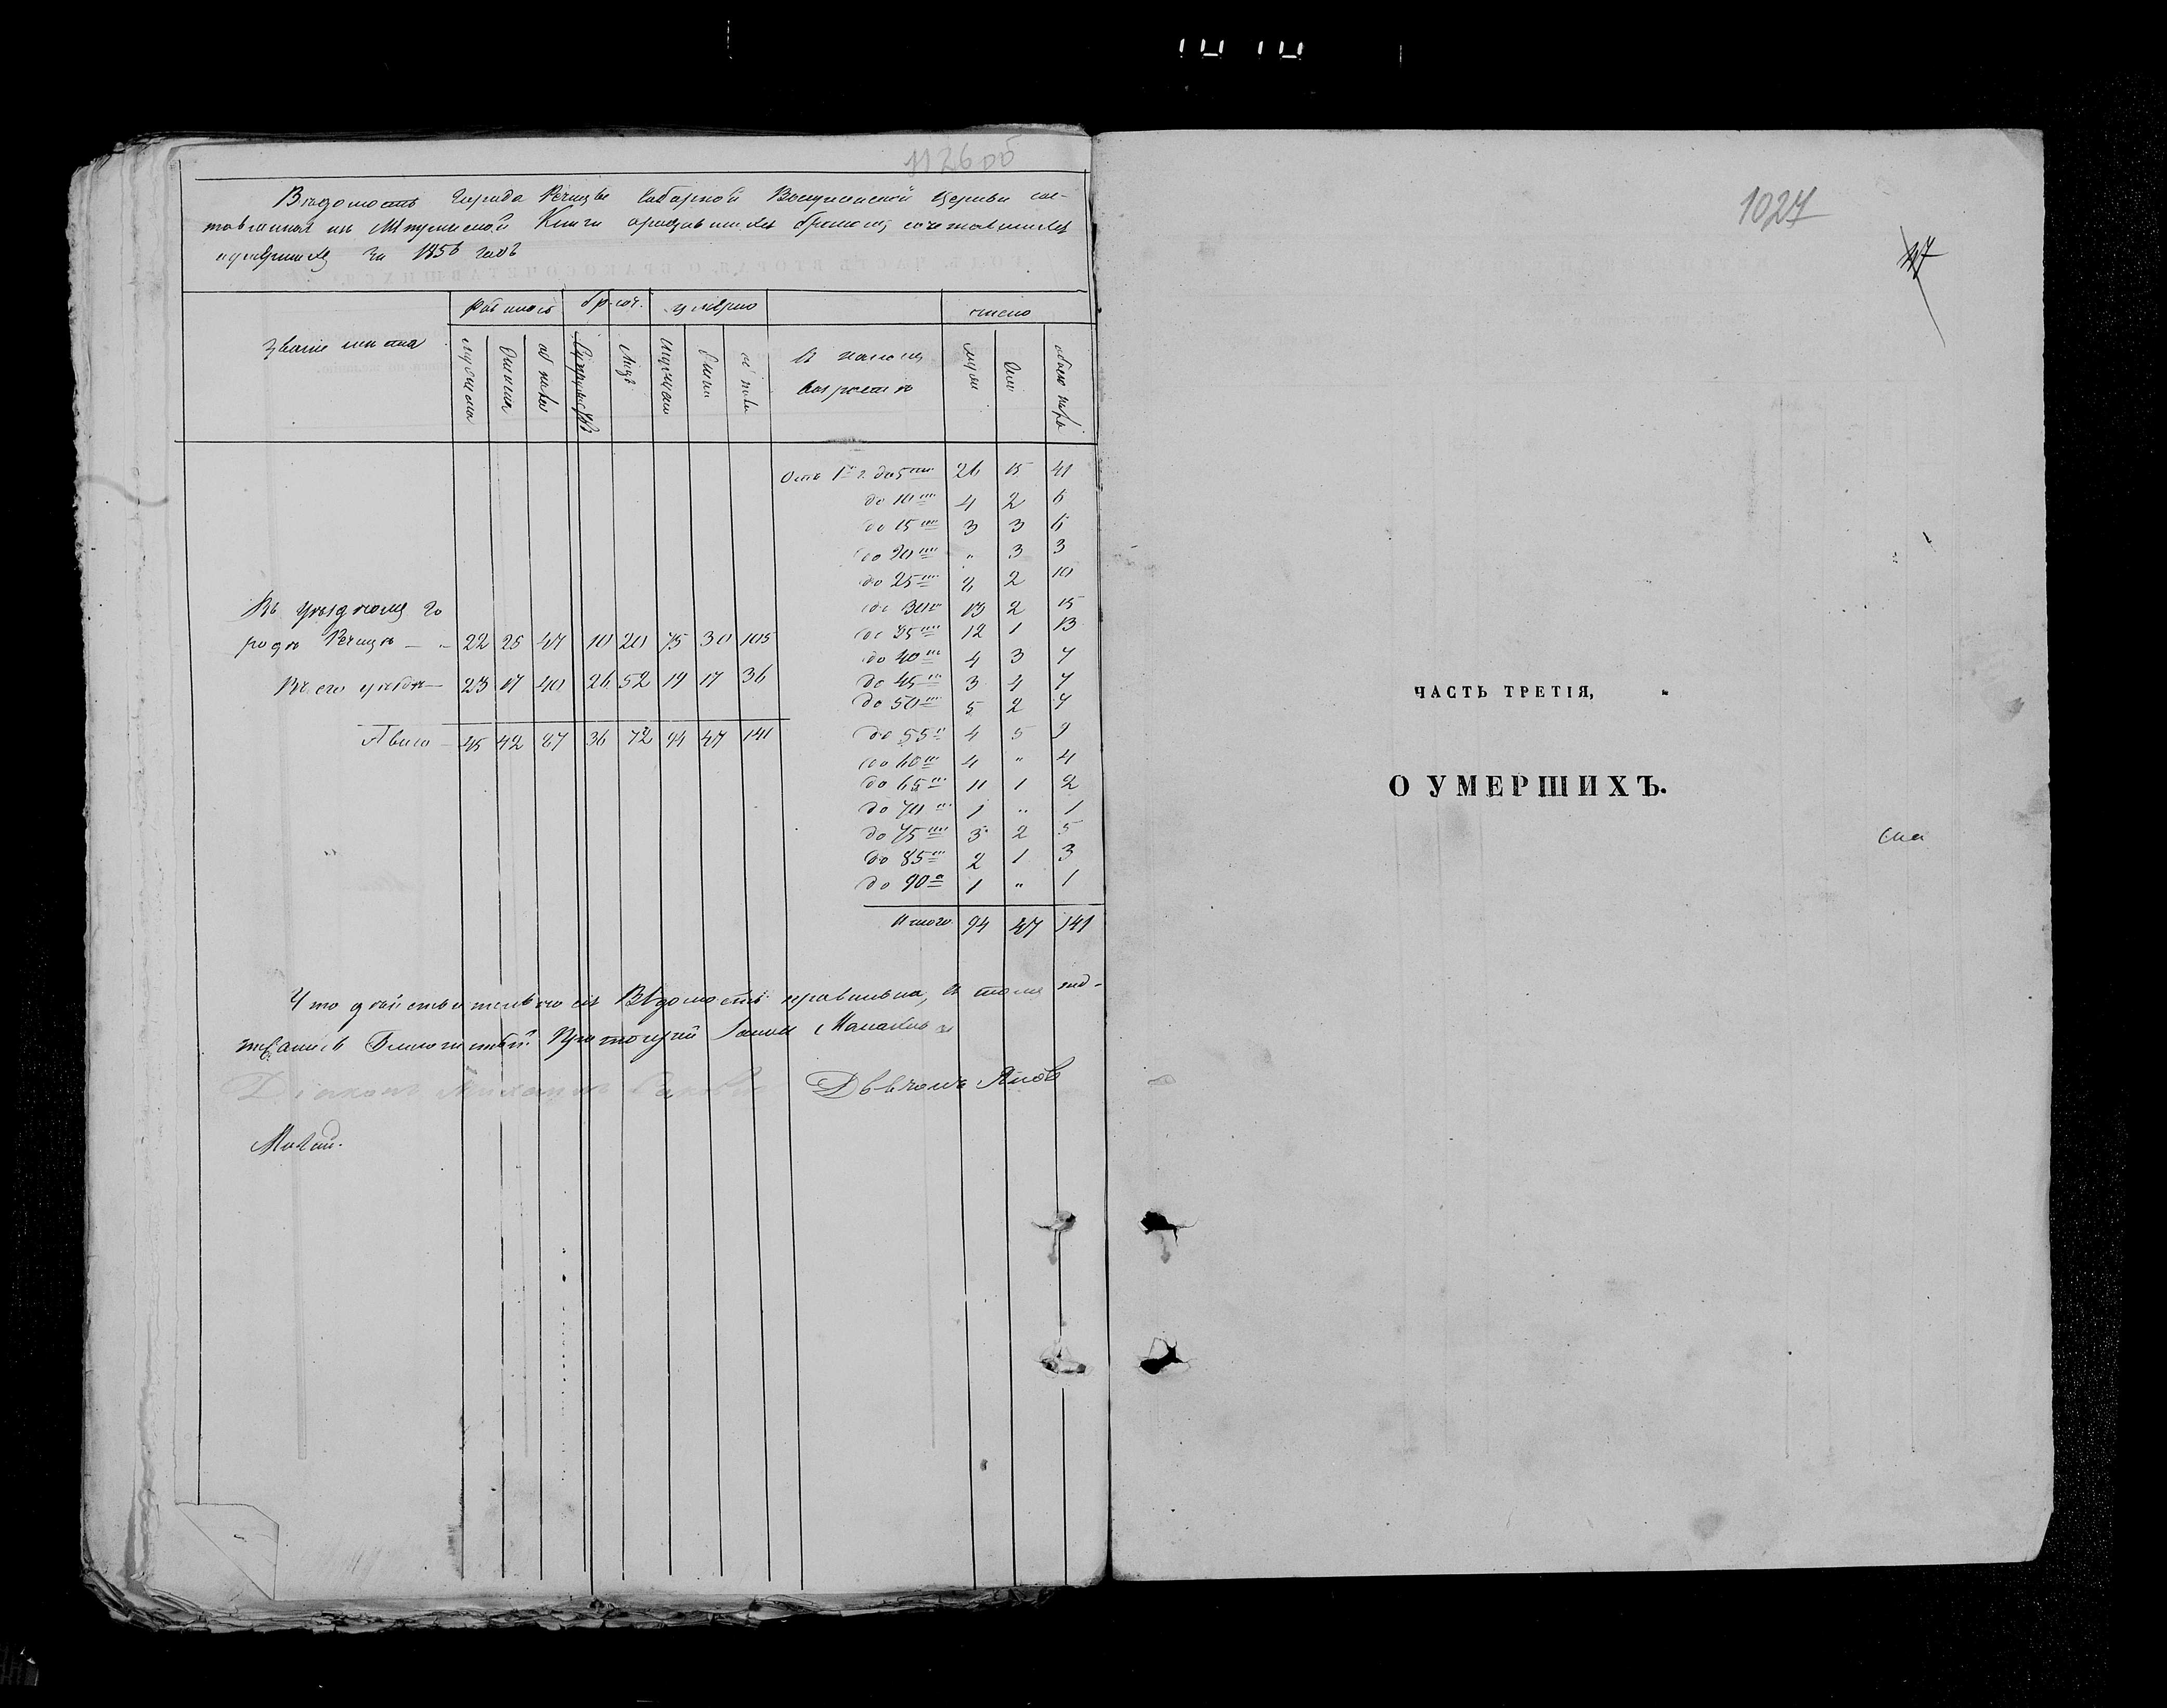 1126 об
Вѣдомость города Речицы Соборной Воскресенской Церкви сос-
тавленная изъ Метрической Книги о родившихся браком сочетавшихся
и умершихъ за 1856 годъ
Званіе мѣста
родилось
бр. соч.
умерло
число
мужска
женска
обоего
Супружествъ
лицъ
мужска
женск
обоего
В какомъ
возрастѣ
муж
жен
обоего пола
Отъ 1го г. до 5ти 26 15 41
до 10ти 4 2 6
до 15ти 3 3 6
до 20ти " 3 3
до 25ти 8 2 10
до 30ти 13 2 15
до 35ти 12 1 13
до 40ти 4 3 7
до 45ти 3 4 7
до 50ти 5 2 7
до 55ти 4 5 9
до 60ти 4 " 4
до 65ти 1 1 2
до 70ти 1 " 1
до 75ти 3 2 5
до 85ти 2 1 3
до 90та 1 " 1
Итого 94 47 141
Въ уѣздномъ го
родѣ Речицѣ — 22 25 47 10 20 75 30 105
Въ его уѣздѣ — 23 17 40 26 52 19 17 36
Всего — 45 42 87 36 72 94 47 141
Что дѣйствительно сія Вѣдомость правильна, в томъ под-
писались Благочинный Протоіерей Іоаннъ
Діаконъ Михаилъ Дьячокъ Яковъ
1027
47
ЧАСТЬ ТРЕТІЯ,
О УМЕРШИХЪ.